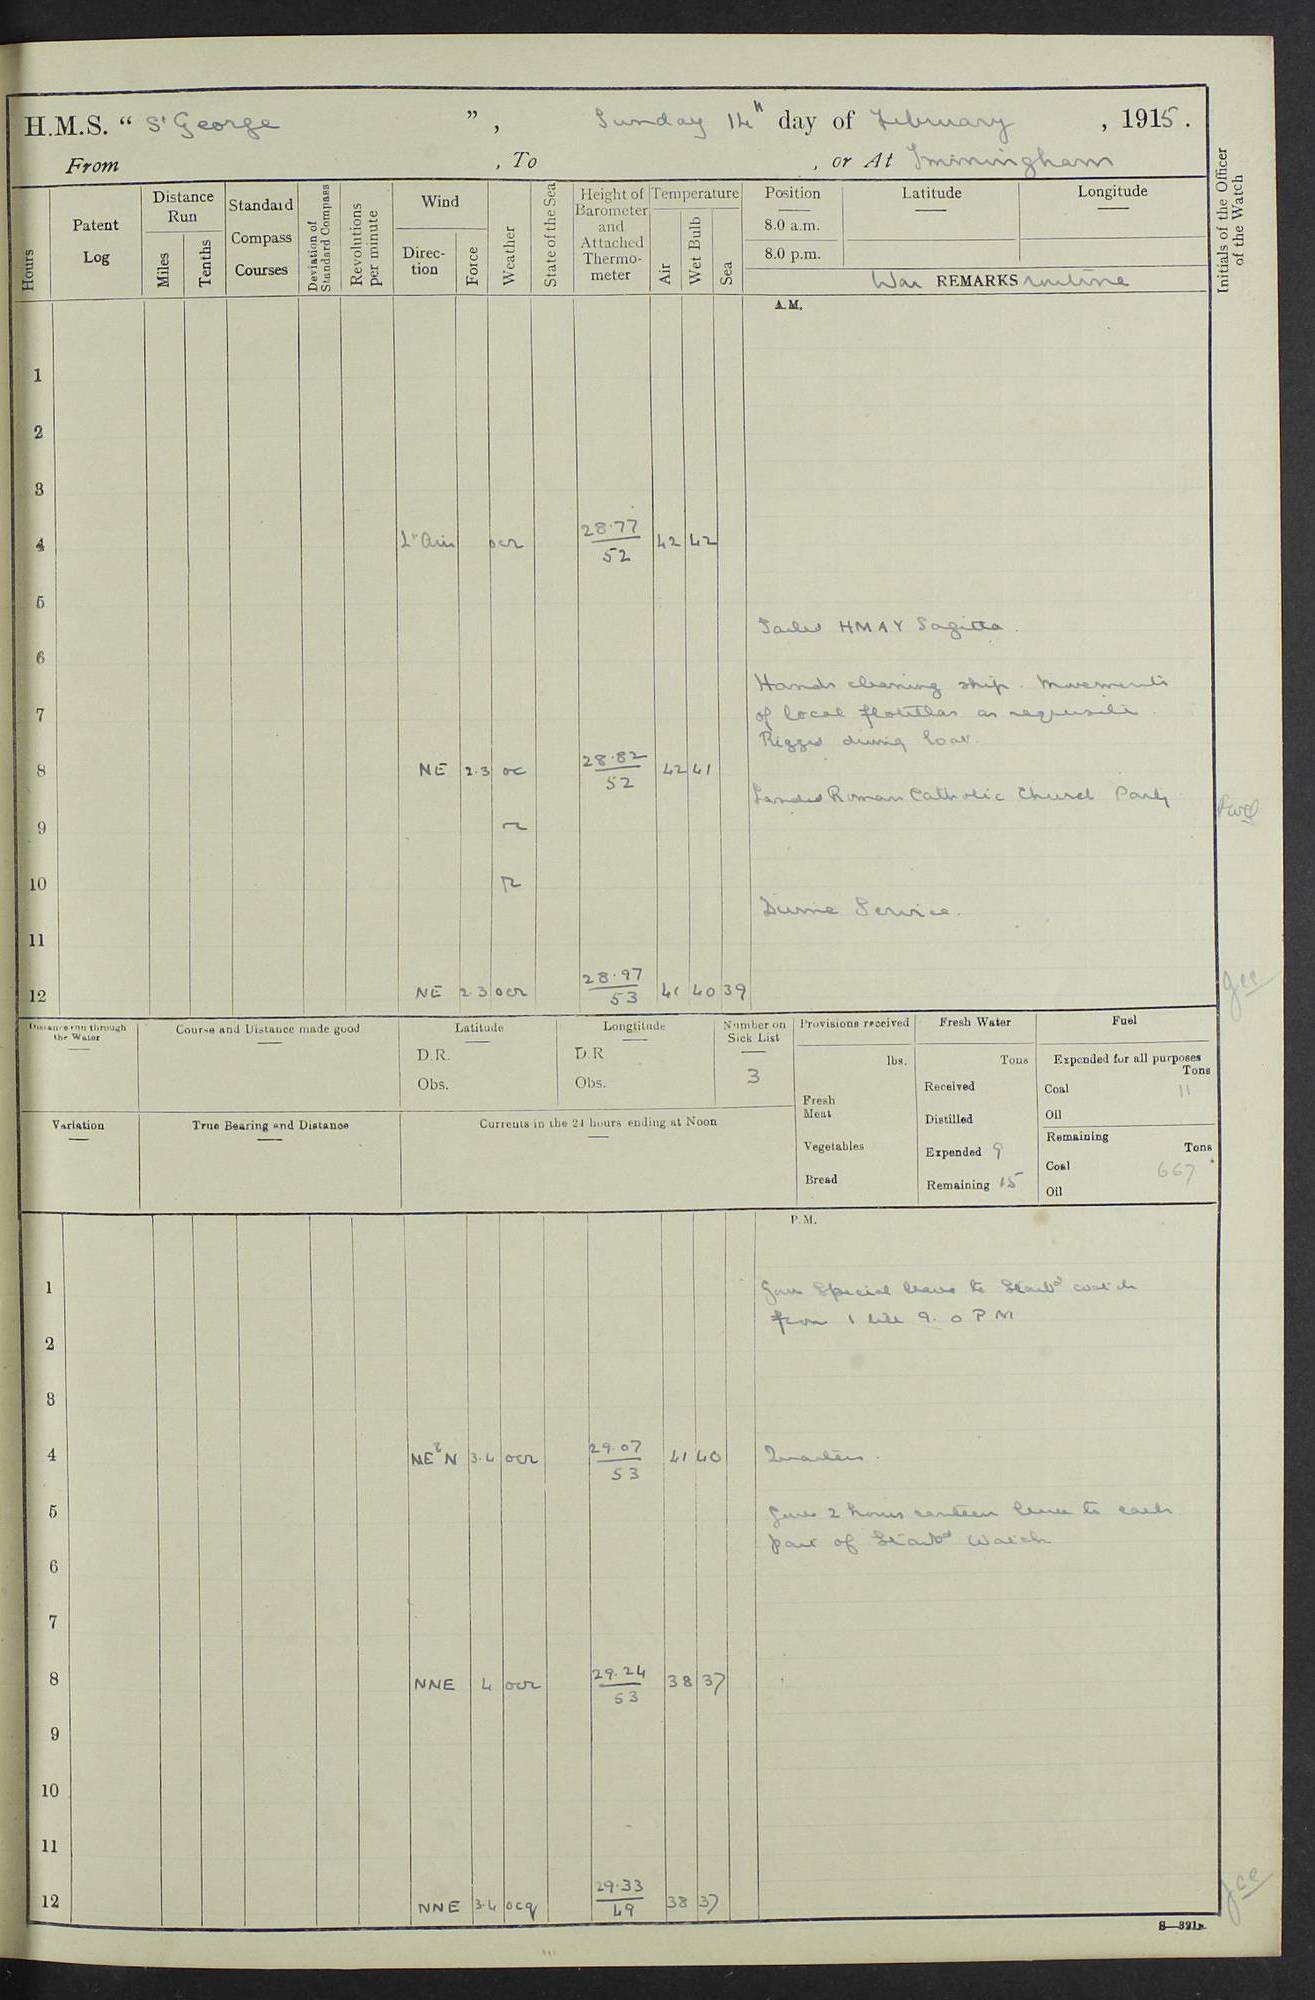 H.M.S. “ St George ”, Sunday 14th day of February, 1915.
From , To , or At Immingham
Hours
Patent Log
Distance Run
Miles
Tenths
Standard Compass Courses
Deviation of Standard Compass
Revolutions per minute
Wind
Direc-tion
Force
Weather
State of the Sea
Height of Barometer and Attached Thermo-meter
Temperature
Air
Wet Bulb
Sea
Position
8.0 a.m.
8.0 p.m.
Latitude
Longitude
War REMARKS routine
Initials of the Officer of the Watch
A.M.
1
2
3
4 Lt Airs ocr 28.77 52 42 42
5
Sailed HMAY Sagitta.
6
Hands cleaning ship. Movements
7 of local flotillas as requisite.
Rigged diving boat.
8 NE 2.3 oc 28.82 52 42 41
Landed Roman Catholic Church Party
9 r
10 r
Divine Service.
11
12 NE 2.3 ocr 28.97 53 41 40 39
Distance run through the Water
Course and Distance made good
Latitude
D.R.
Obs.
Longtitude
D.R
Obs.
Number on Sick List
3
Provisions received
lbs.
Fresh Meat
Vegetables
Bread
Fresh Water
Tons
Received
Distilled
Expended 9
Remaining 15
Fuel
Expended for all purposes
Tons
Coal 11
Oil
Remaining
Tons
Coal 667
Oil
Variation
True Bearing and Distance
Currents in the 24 hours ending at Noon
P.M.
1 Gave Special leave to Starbd watch
from 1 till 9.0 PM
2
3
4 NEbN 3.4 ocr 29.07 53 41 40 Quarters.
5 Gave 2 hours canteen leave to each
part of Starbd Watch
6
7
8 NNE 4 ocr 29.24 53 38 37
9
10
11
12 NNE 3.4 ocq 29.33 49 38 37
S—321B.